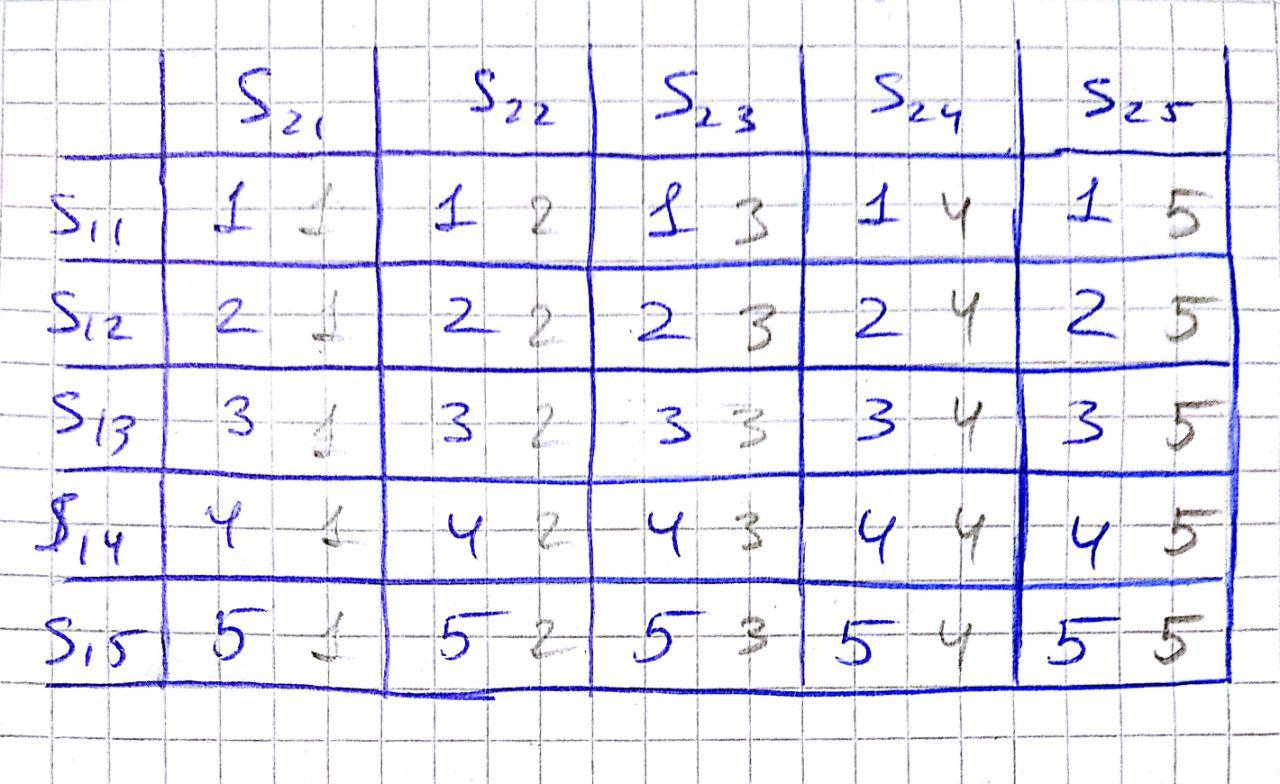 S₂₁ S₂₂ S₂₃ S₂₄ S₂₅
S₁₁ 1 1 1 2 1 3 1 4 1 5
S₁₂ 2 1 2 2 2 3 2 4 2 5
S₁₃ 3 1 3 2 3 3 3 4 3 5
S₁₄ 4 1 4 2 4 3 4 4 4 5
S₁₅ 5 1 5 2 5 3 5 4 5 5